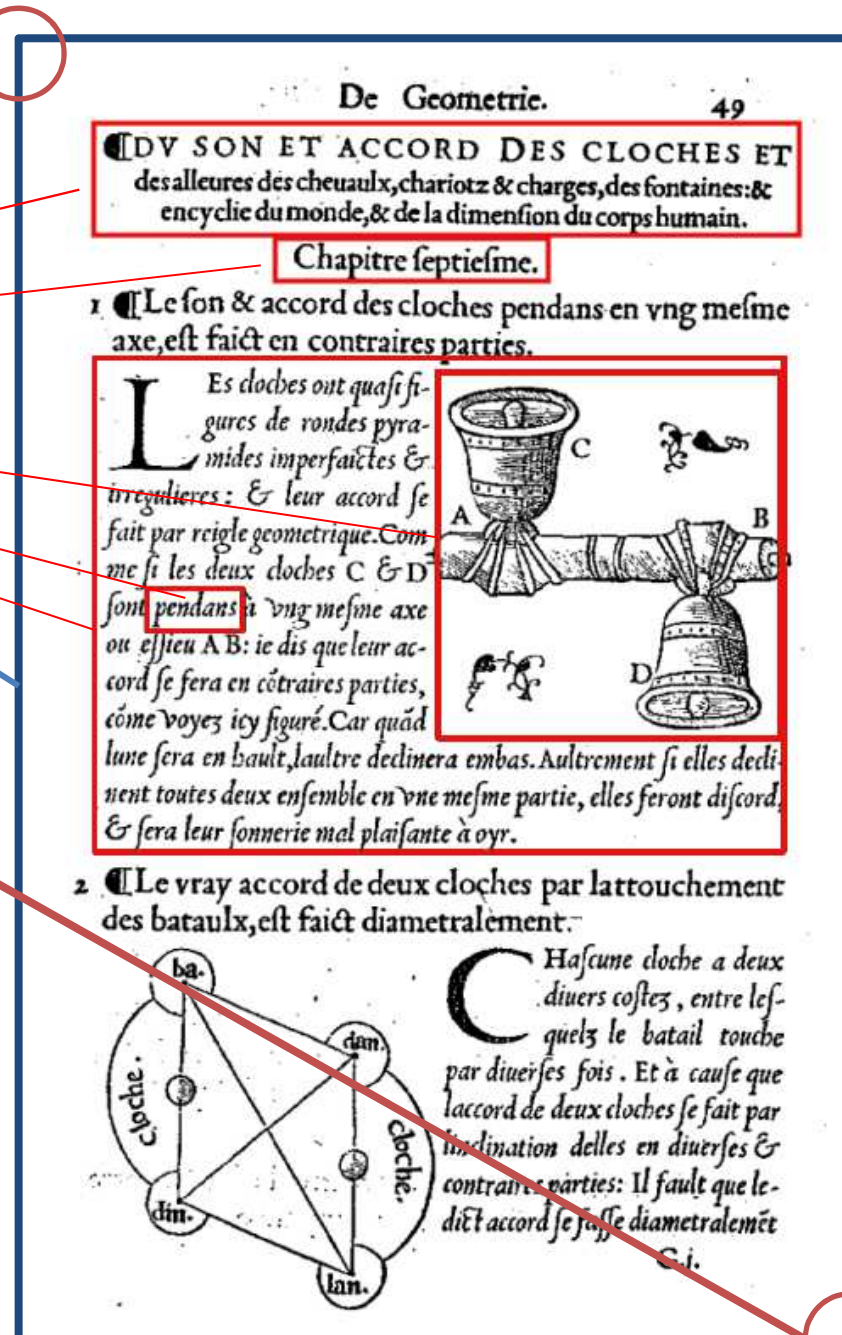 De Geometrie. 49
❡DV SON ET ACCORD DES CLOCHES ET
des alleures des cheuaulx, chariotz & charges, des fontaines: &
encyclie du monde, & de la dimenſion du corps humain.
Chapitre ſeptieſme.
1 ❡Le ſon & accord des cloches pendans en vng meſme
axe, eſt faict en contraires parties.
LEs cloches ont quaſi fi-
gures de rondes pyra-
mides imperfaictes &
irregulieres: & leur accord ſe
fait par reigle geometrique. Com
me ſi les deux cloches C & D
ſont pendans à vng meſme axe
ou eſſieu A B: ie dis que leur ac-
cord ſe fera en cōtraires parties,
cōme voyez icy figuré. Car quād
lune ſera en hault, laultre declinera embas. Aultrement ſi elles decli-
nent toutes deux enſemble en vne meſme partie, elles feront diſcord,
& ſera leur ſonnerie mal plaiſante à oyr.
C
A
B
D
2 ❡Le vray accord de deux cloches par lattouchement
des bataulx, eſt faict diametralement.
ba.
dan.
cloche.
cloche.
din.
lan.
CHaſcune cloche a deux
diuers coſtez, entre leſ-
quelz le batail touche
par diuerſes fois. Et à cauſe que
laccord de deux cloches ſe fait par
linclination delles en diuerſes &
contraires parties: Il fault que le-
dict accord ſe faſſe diametralemēt
G.i.